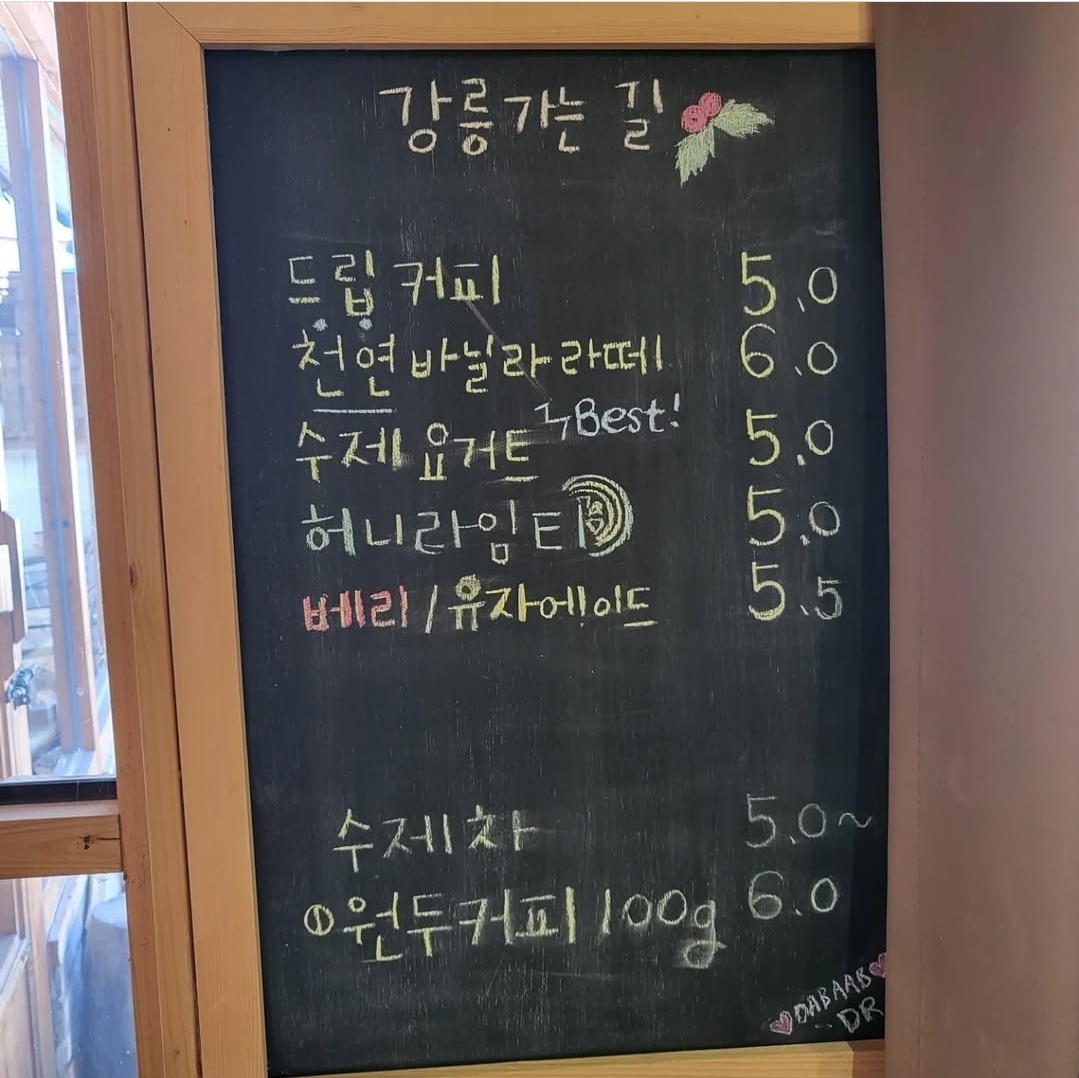 강릉가는 길
드립 커피 5.0
천연 바닐라 라떼 6.0
↳Best!
수제 요거트 5.0
허니라임 티 5.0
베리/유자에이드 5.5
수제차 5.0~
원두커피 100g 6.0
DABAAB
DR